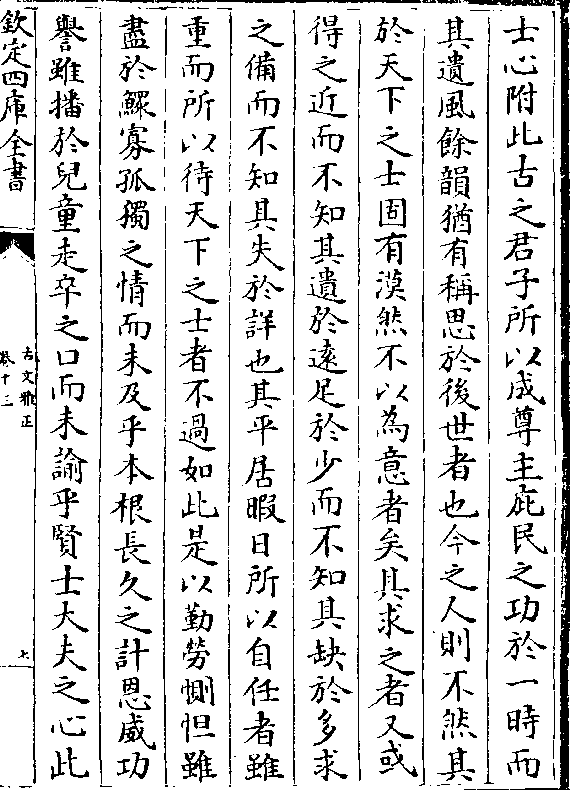 士心附此古之君子所以成尊主庇民之功於一時而
其遺風餘韻猶有稱思於後世者也今之人則不然其
於天下之士固有漠然不以為意者矣其求之者又或
得之近而不知其遺於遠足於少而不知其缺於多求
之備而不知其失於詳也其平居暇日所以自任者雖
重而所以待天下之士者不過如此是以勤勞惻怛雖
盡於鰥寡孤獨之情而未及乎本根長久之計恩威功
譽雖播於兒童走卒之口而未諭乎賢士大夫之心此
欽定四庫全書
古文雅正
卷十三
七